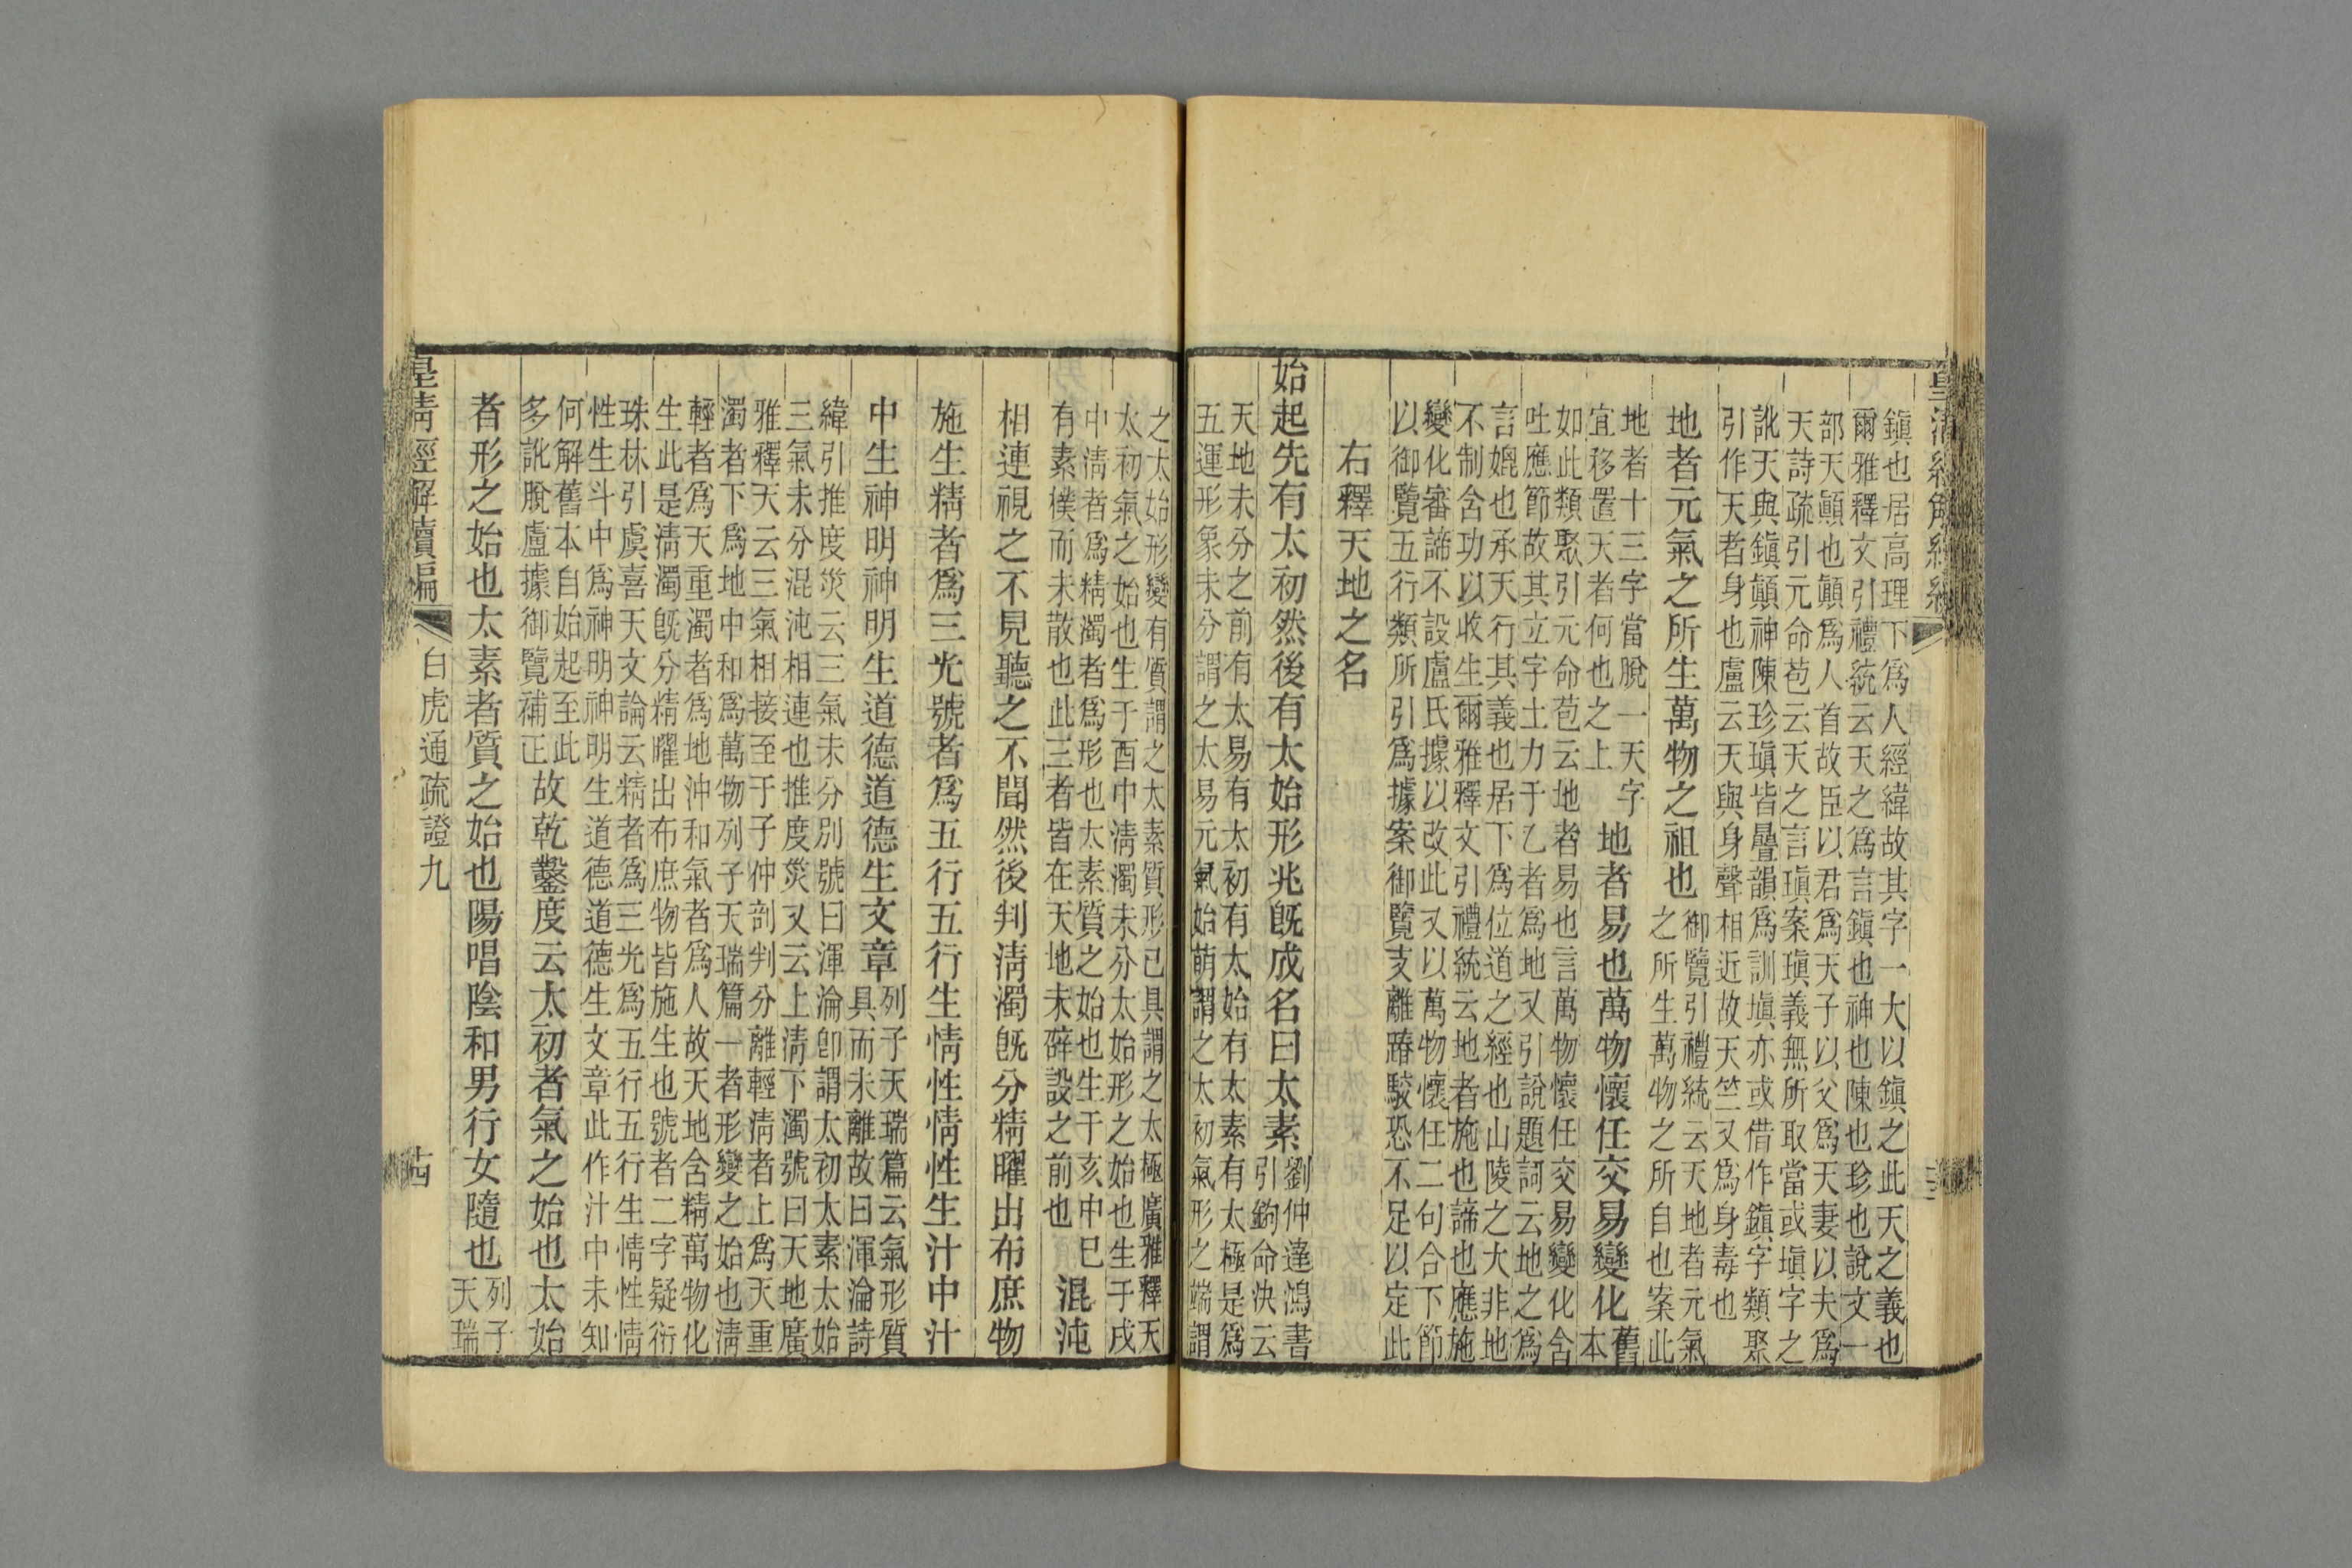 皇清經解續編
鎭也居高理下爲人經緯故其字一大以鎭之此天之義也
爾雅釋文引禮統云天之爲言鎭也神也陳也珍也說文一
部天顚也顚爲人首故臣以君爲天子以父爲天妻以夫爲
天詩疏引元命苞云天之言瑱案瑱義無所取當或塡字之
訛天與鎭顚神陳珍瑱皆疊韻爲訓塡亦或借作鎭字類聚
引作天者身也盧云天與身聲相近故天竺又爲身毒也
地者元氣之所生萬物之祖也
御覽引禮統云天地者元氣
之所生萬物之所自也案此
地者十三字當脫一天字
宜移置天者何也之上
地者易也萬物懷任交易變化
舊
本
如此類聚引元命苞云地者易也言萬物懷任交易變化含
吐應節故其立字土力于乙者爲地又引說題詞云地之爲
言媲也承天行其義也居下爲位道之經也山陵之大非地
不制含功以收生爾雅釋文引禮統云地者施也諦也應施
變化審諦不設盧氏據以改此又以萬物懷任二句合下節
以御覽五行類所引爲據案御覽支離蹖駮恐不足以定此
右釋天地之名
始起先有太初然後有太始形兆旣成名曰太素
劉仲達鴻書
引鉤命決云
天地未分之前有太易有太初有太始有太素有太極是爲
五運形象未分謂之太易元氣始萌謂之太初氣形之端謂
之太始形變有質謂之太素質形已具謂之太極廣雅釋天
太初氣之始也生于酉中淸濁未分太始形之始也生于戌
中淸者爲精濁者爲形也太素質之始也生于亥中巳
有素樸而未散也此三者皆在天地未辟設之前也
混沌
相連視之不見聽之不聞然後判淸濁旣分精曜出布庶物
施生精者爲三光號者爲五行五行生情性情性生汁中汁
中生神明神明生道德道德生文章
列子天瑞篇云氣形質
具而未離故曰渾淪詩
緯引推度災云三氣未分別號曰渾淪卽謂太初太素太始
三氣未分混沌相連也推度災又云上淸下濁號曰天地廣
雅釋天云三氣相接至于子仲剖判分離輕淸者上爲天重
濁者下爲地中和爲萬物列子天瑞篇一者形變之始也淸
輕者爲天重濁者爲地沖和氣者爲人故天地含精萬物化
生此是淸濁旣分精曜出布庶物皆施生也號者二字疑衍
珠林引虞喜天文論云精者爲三光爲五行五行生情性情
性生斗中爲神明神明生道德道德生文章此作汁中未知
何解舊本自始起至此
多訛脫盧據御覽補正
故乾鑿度云太初者氣之始也太始
者形之始也太素者質之始也陽唱陰和男行女隨也
列子
天瑞
皇淸經解續編
白虎通疏證九
十四